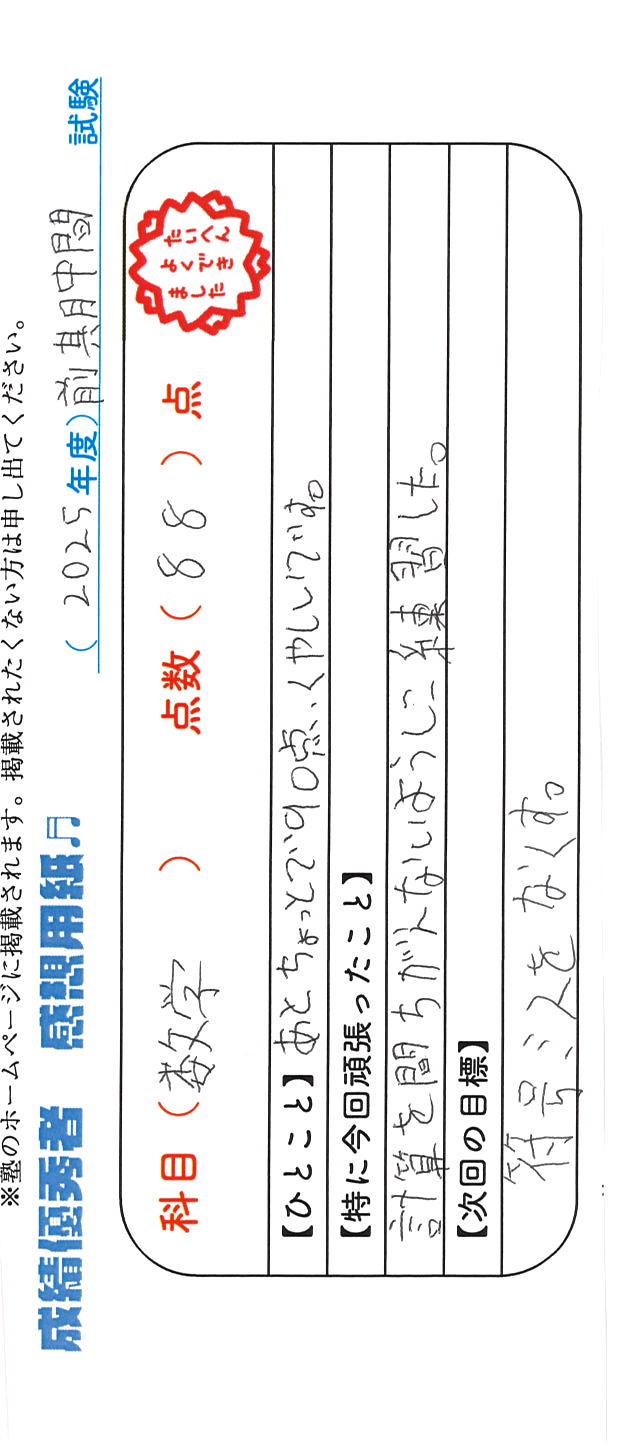 ※塾のホームページに掲載されます。掲載されたくない方は申し出てください。
成績優秀者 感想用紙♫ (2025年度)前期中間 試験
科目(数学) 点数(88)点
たいへん
よくでき
ました
【ひとこと】あとちょっとで90点、くやしいです。
【特に今回頑張ったこと】
計算を間ちがえないように練習した。
【次回の目標】
符号ミスをなくす。